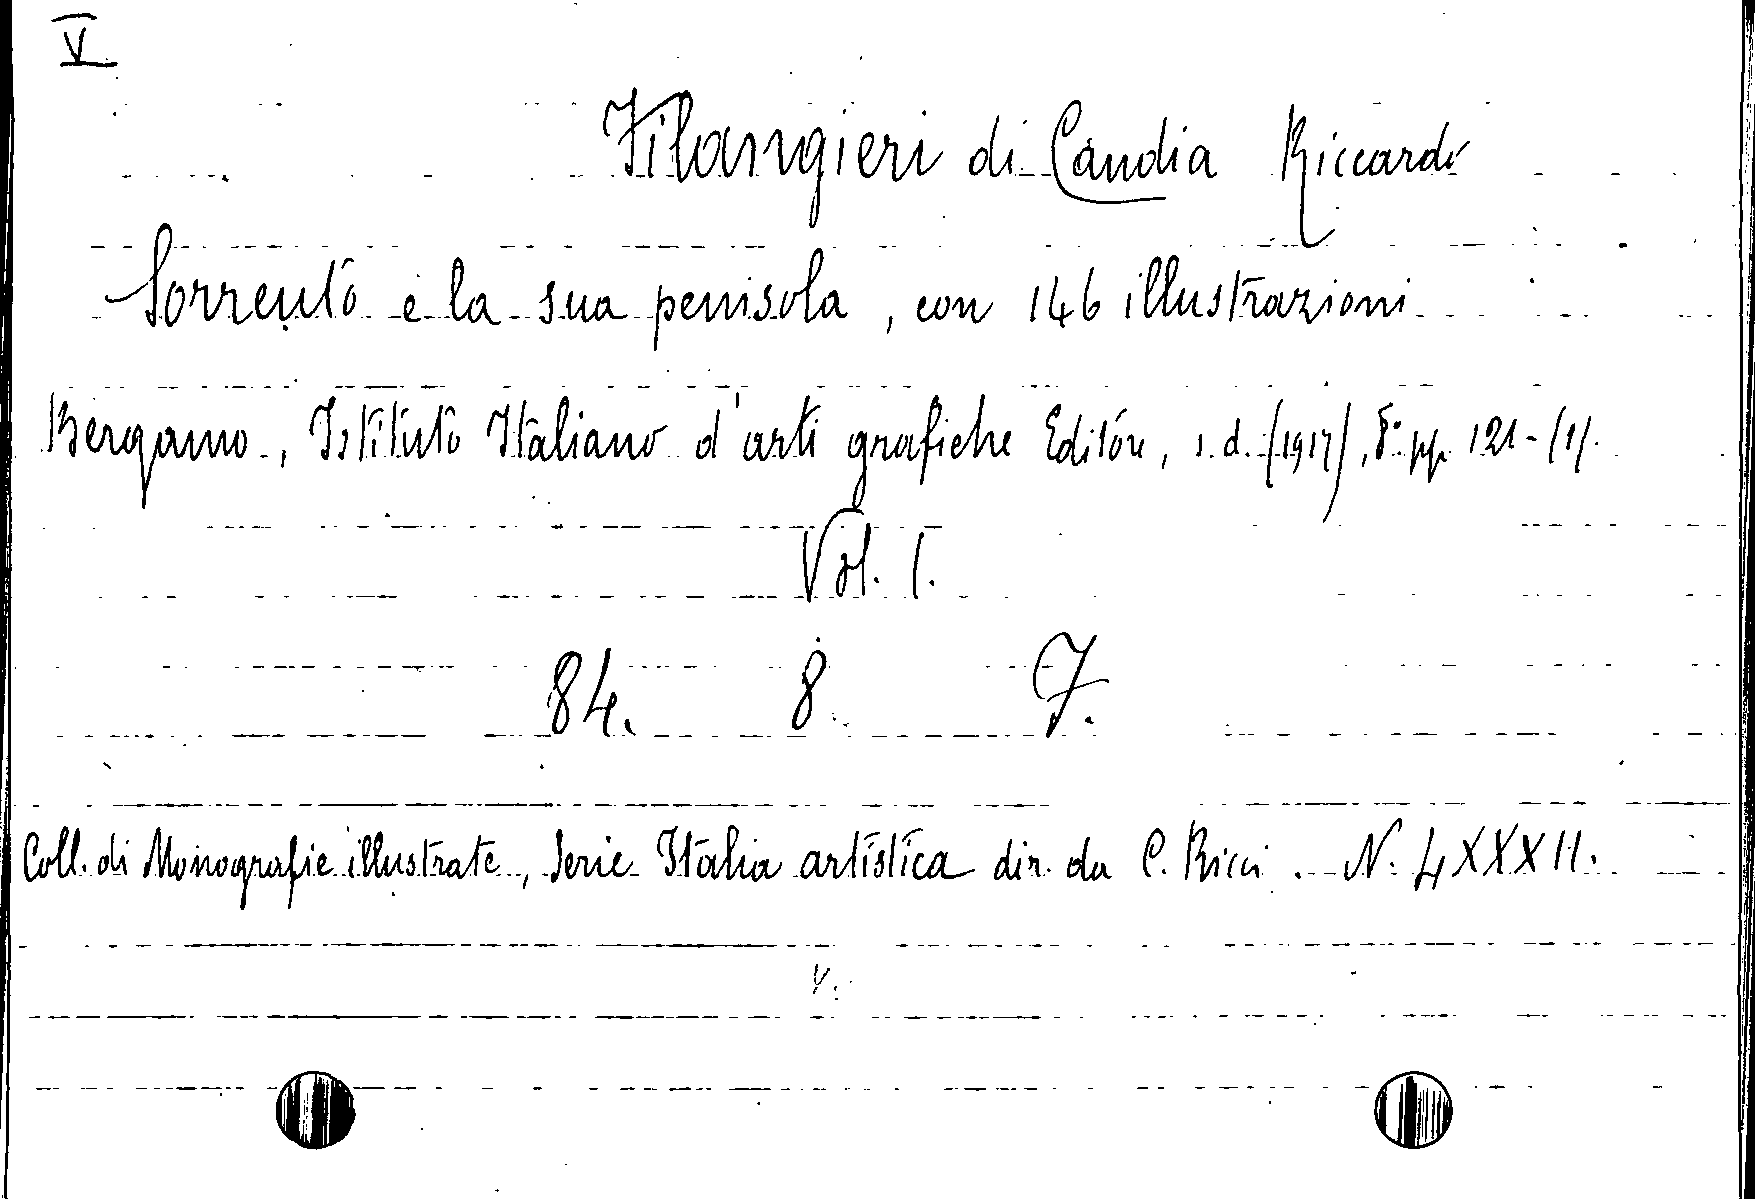 V
Filangieri di Candia Riccardo
Sorrento e la sua penisola, con 146 illustrazioni
Bergamo, Istituto Italiano d'arti grafiche Editore, s. d. (1917), 8° pp. 121-(1).
Vol. 1.
84. 8. F.
Coll. di Monografie illustrate, Serie Italia artistica dir. da C. Ricci. N. LXXXII.
V.